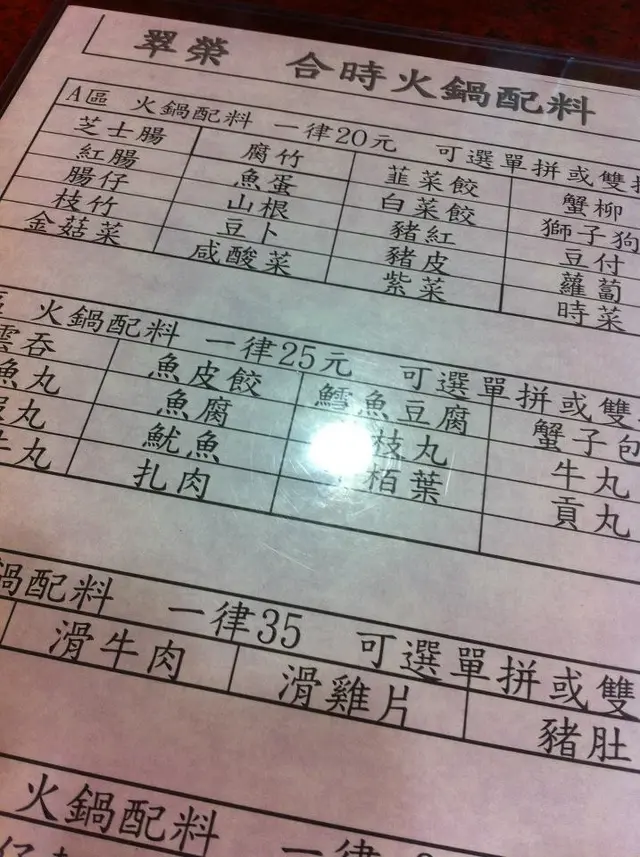 翠榮 合時火鍋配料
A區 火鍋配料 一律20元 可選單拼或雙拼
芝士腸 腐竹 韮菜餃 蟹柳
紅腸 魚蛋 白菜餃 獅子狗
腸仔 山根 豬紅 豆付
枝竹 豆卜 豬皮 蘿蔔
金菇菜 咸酸菜 紫菜 時菜
區 火鍋配料 一律25元 可選單拼或雙
雲吞 魚皮餃 鱈魚豆腐 蟹子包
魚丸 魚腐 枝丸 牛丸
丸 魷魚 栢葉 貢丸
牛丸 扎肉
鍋配料 一律35 可選單拼或雙
滑牛肉 滑雞片 豬肚
火鍋配料 一律